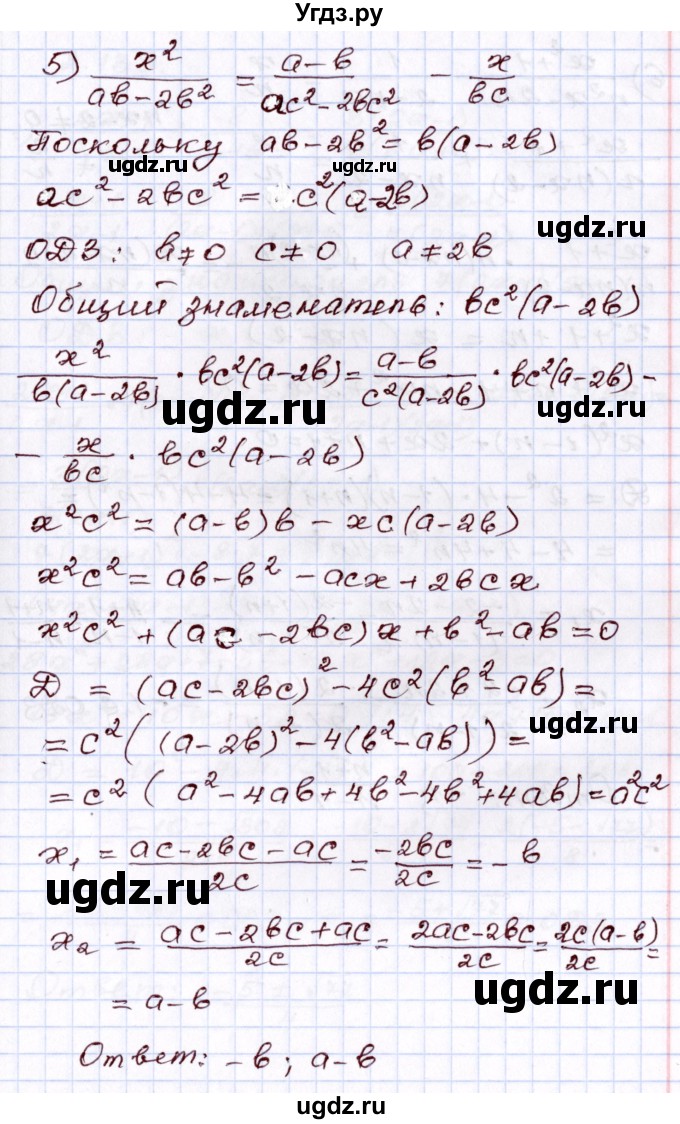 Угдз.ру
5) x²/(ab-2b²) = (a-b)/(ac²-2bc²) - x/(bc)
ugdz.ru
Поскольку ab-2b²=b(a-2b)
ugdz.ru
ac²-2bc² = c²(a-2b)
ОДЗ: b≠0 c≠0 a≠2b
Общий знаменатель: bc²(a-2b)
x²/(b(a-2b)) · bc²(a-2b) = (a-b)/(c²(a-2b)) · bc²(a-2b) -
ugdz.ru
ugdz.ru
- x/(bc) · bc²(a-2b)
x²c² = (a-b)b - xc(a-2b)
x²c² = ab-b² - acx + 2bcx
x²c² + (ac-2bc)x + b²-ab=0
D = (ac-2bc)² - 4c²(b²-ab) =
ugdz.ru
= c²((a-2b)² - 4(b²-ab)) =
= c²(a²-4ab+4b²-4b²+4ab)=a²c²
x₁ = (ac-2bc-ac)/2c = -2bc/2c = -b
ugdz.ru
x₂ = (ac-2bc+ac)/2c = (2ac-2bc)/2c = 2c(a-b)/2c =
ugdz.ru
ugdz.ru
= a-b
Ответ: -b; a-b
ugdz.ru